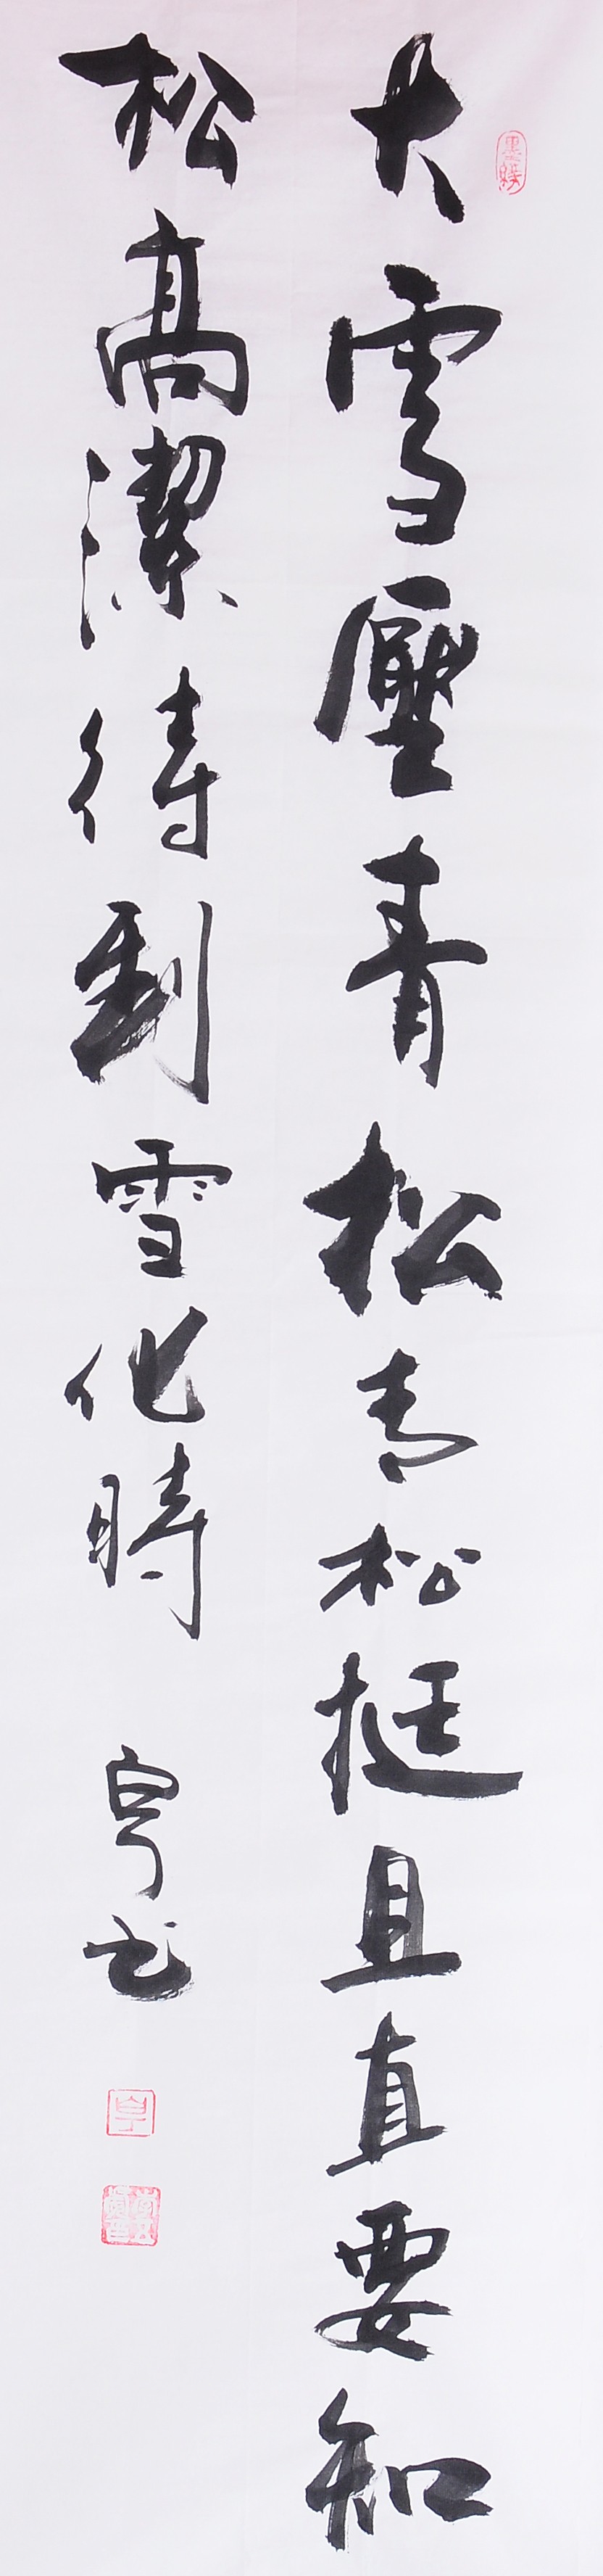 大雪壓青松青松挺且直要知
松高潔待到雪化時 亨书
墨緣
亨